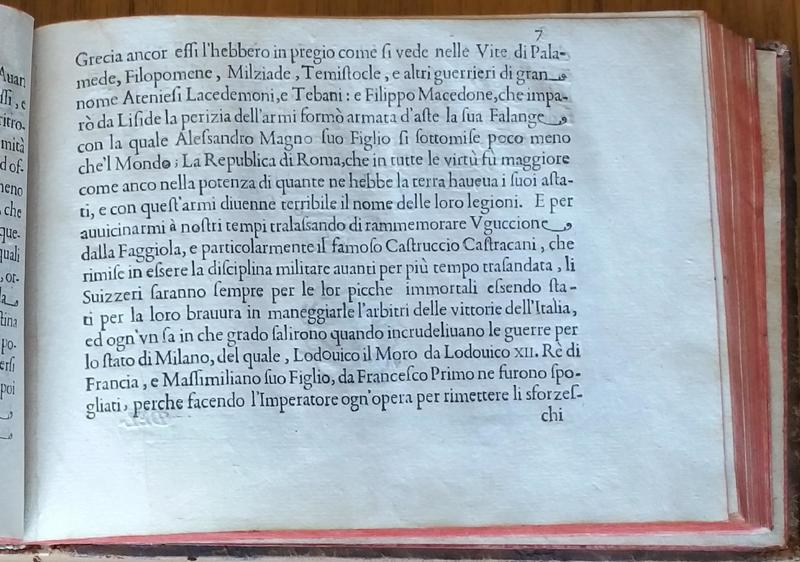 Auan
ſſi, e
ritro-
mità
d of-
neno
, che
que-
quali
, or-
la
ſtina
po-
erſi
poi
7
Grecia ancor eſſi l'hebbero in pregio come ſi vede nelle Vite di Pala-
mede, Filopomene, Milziade, Temiſtocle, e altri guerrieri di gran
nome Atenieſi Lacedemoni, e Tebani: e Filippo Macedone, che impa-
rò da Liſide la perizia dell'armi formò armata d'aſte la ſua Falange
con la quale Aleſſandro Magno ſuo Figlio ſi ſottomiſe poco meno
che'l Mondo; La Republica di Roma, che in tutte le virtù fù maggiore
come anco nella potenza di quante ne hebbe la terra haueua i ſuoi aſta-
ti, e con queſt'armi diuenne terribile il nome delle loro legioni. E per
auuicinarmi à noſtri tempi tralaſſando di rammemorare Vguccione
dalla Faggiola, e particolarmente il famoſo Caſtruccio Caſtracani, che
rimiſe in eſſere la diſciplina militare auanti per più tempo traſandata, li
Suizzeri ſaranno ſempre per le lor picche immortali eſſendo ſta-
ti per la loro brauura in maneggiarle l'arbitri delle vittorie dell'Italia,
ed ogn'vn ſa in che grado ſalirono quando incrudeliuano le guerre per
lo ſtato di Milano, del quale, Lodouico il Moro da Lodouico XII. Rè di
Francia, e Maſſimiliano ſuo Figlio, da Franceſco Primo ne furono ſpo-
gliati, perche facendo l'Imperatore ogn'opera per rimettere li sforzeſ-
chi